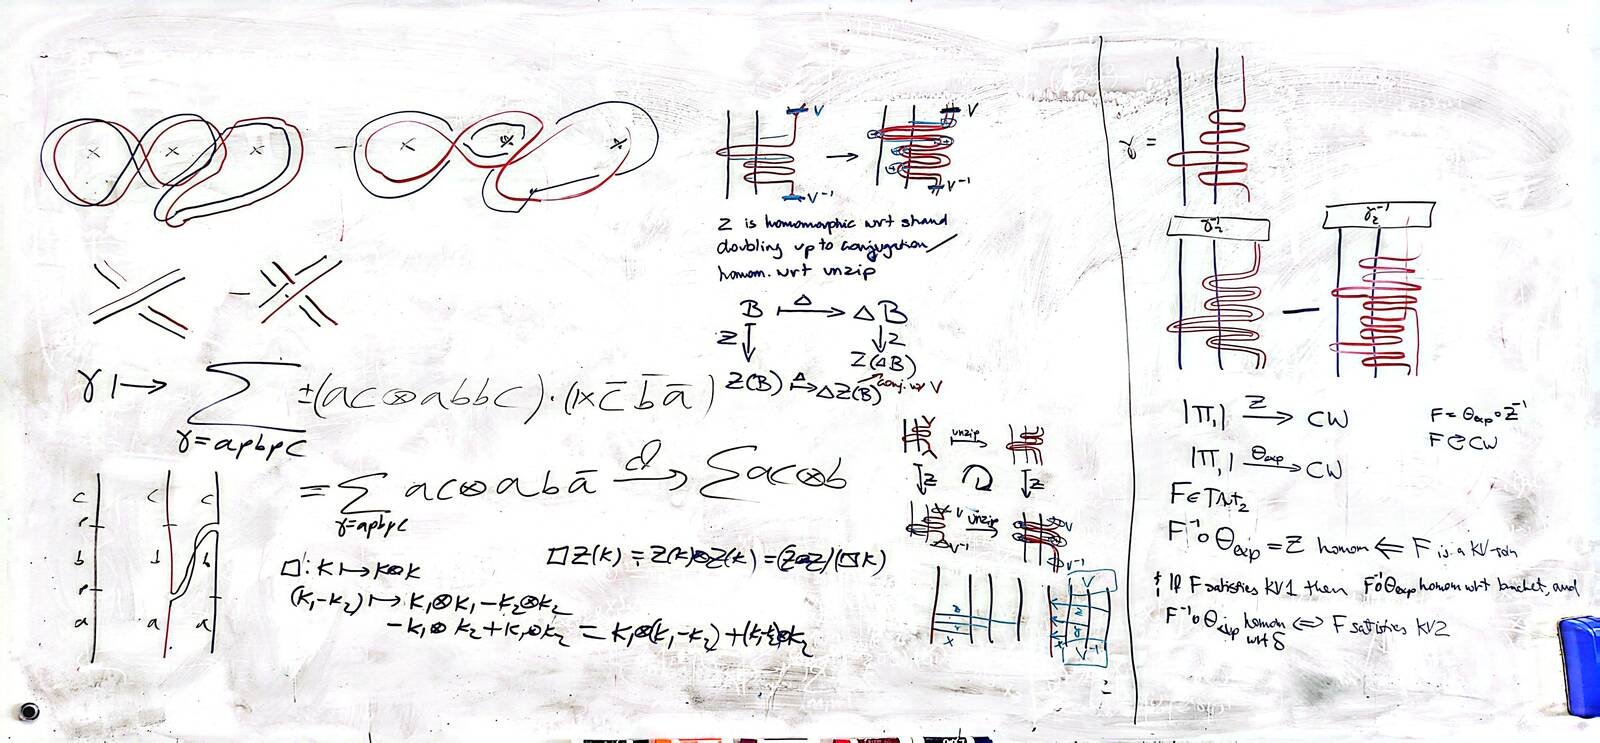 Z is homomorphic wrt strand
doubling up to conjugation
homom. wrt unzip
B Δ ΔB
Z Z
Z(ΔB)
Z(B) Δ ΔZ(B) conj. w/ V
γ ↦ ∑ ±(ac⊗abbc)·(1×c̄ b̄ ā)
γ=apbpc
= ∑ ac⊗abā d→ ∑ac⊗b
γ=apbpc
c c c
p
b b b
p
a a a
□: K ↦ K⊗K
(K₁-K₂) ↦ K₁⊗K₁-K₂⊗K₂
-K₁⊗K₂+K₁⊗K₂ = K₁⊗(K₁-K₂)+(K₁-K₂)⊗K₂
□Z(K) = Z(K)⊗Z(K) = (Z⊗Z)(□K)
V
V⁻¹
V
V⁻¹
unzip
Z Z
V unzip V
V⁻¹ V⁻¹
V
z
y
x
V⁻¹
γ =
γ₂⁻¹ γ₂⁻¹
|π₁| Z→ CW
|π₁| θexp→ CW
F = θexp∘Z⁻¹
F ↻ CW
F∈TAut₂
F⁻¹∘θexp = Z homom ⇐ F is a KV-soln
If F satisfies KV1 then F⁻¹∘θexp homom wrt bracket, and
F⁻¹∘θexp homom wrt δ ⇔ F satisfies KV2